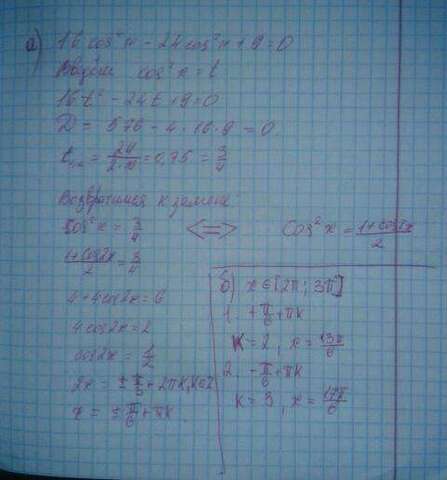 а) 16 cos⁴x - 24 cos²x + 9 = 0
Введём cos²x = t
16t² - 24t + 9 = 0
D = 576 - 4·16·9 = 0
t₁,₂ = 24/2·16 = 0,75 = 3/4
Возвратимся к замене:
cos²x = 3/4 <=> cos²x = 1+cos2x/2
1+cos2x/2 = 3/4
4+4cos2x = 6
4cos2x = 2
cos2x = 1/2
2x = ± π/3 + 2πk, k∈Z
x = ± π/6 + πk
б) x ∈ [2π; 3π]
1. + π/6 + πk
k = 2, x = 13π/6
2. - π/6 + πk
k = 3, x = 17π/6